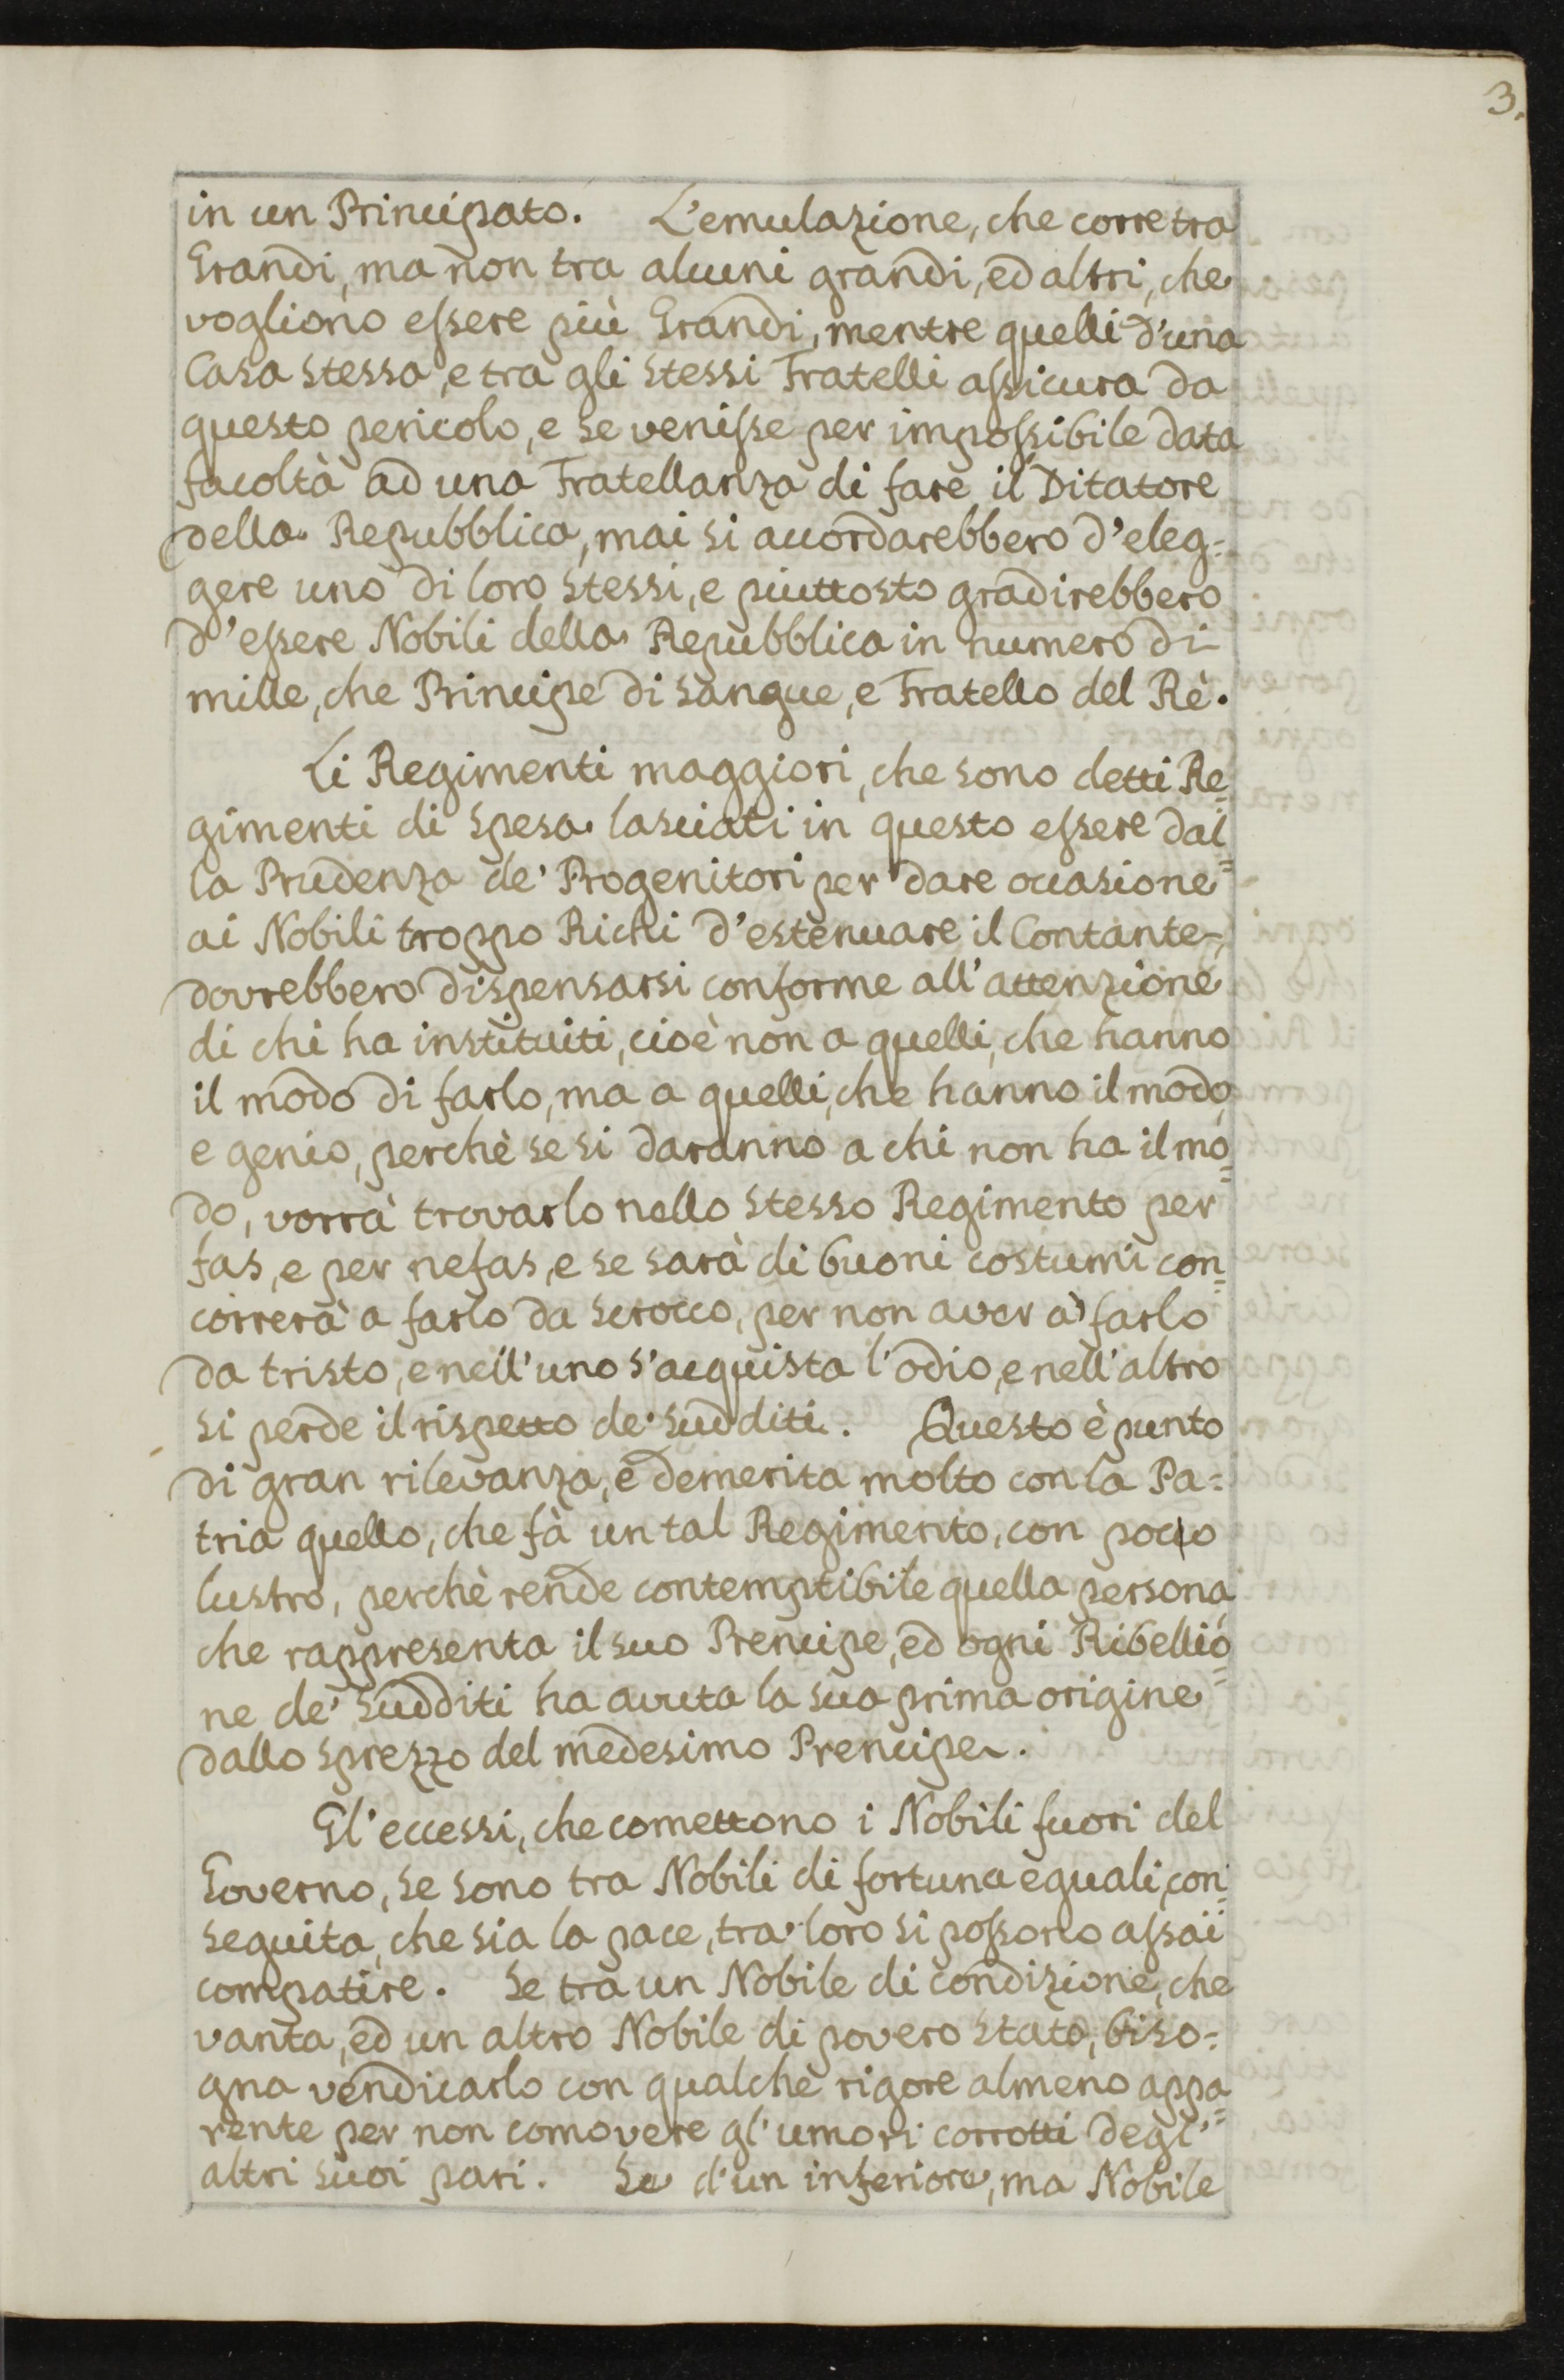 3.
in un Principato. L'emulazione, che corre tra
Grandi, ma non tra alcuni grandi, ed altri, che
vogliono essere più Grandi, mentre quelli d'una
Casa stessa, e tra gli stessi Fratelli assicura da
questo pericolo, e se venisse per impossibile data
facoltà ad una Fratellanza di fare il Ditatore
della Repubblica, mai si accordarebbero d'eleg=
gere uno di loro stessi, e piuttosto gradirebbero
d'essere Nobili della Repubblica in numero di
mille, che Principe di sangue, e Fratello del Rè.
Li Regimenti maggiori, che sono detti Re=
gimenti di spesa lasciati in questo essere dal=
la Prudenza de' Progenitori per dare occasione
ai Nobili troppo Richi d'estenuare il Contante,
dovrebbero dispensarsi conforme all'attenzione
di chi ha instituiti, cioè non a quelli, che hanno
il modo di farlo, ma a quelli, che hanno il modo,
e genio, perchè se si daranno a chi non ha il mo=
do, vorrà trovarlo nello stesso Regimento per
fas, e per nefas, e se sarà di buoni costumi con=
correrà a farlo da scrocco, per non aver à farlo
da tristo, e nell'uno s'acquista l'odio, e nell'altro
si perde il rispetto de' sudditi. Questo è punto
di gran rilevanza, e demerita molto con la Pa=
tria quello, che fà un tal Regimento, con poco
lustro, perchè rende contemptibile quella persona
che rappresenta il suo Prencipe, ed ogni Ribellio=
ne de' sudditi ha avuta la sua prima origine
dallo sprezzo del medesimo Prencipe.
Gl'eccessi, che comettono i Nobili fuori del
Governo, se sono tra Nobili di fortuna eguali, con=
seguita, che sia la pace, tra loro si possono assai
compatire. Se tra un Nobile di condizione, che
vanta, ed un altro Nobile di povero stato, biso=
gna vendicarlo con qualche rigore almeno appa=
rente per non comovere gl'umori corrotti degl'
altri suoi pari. Se d'un inferiore, ma Nobile